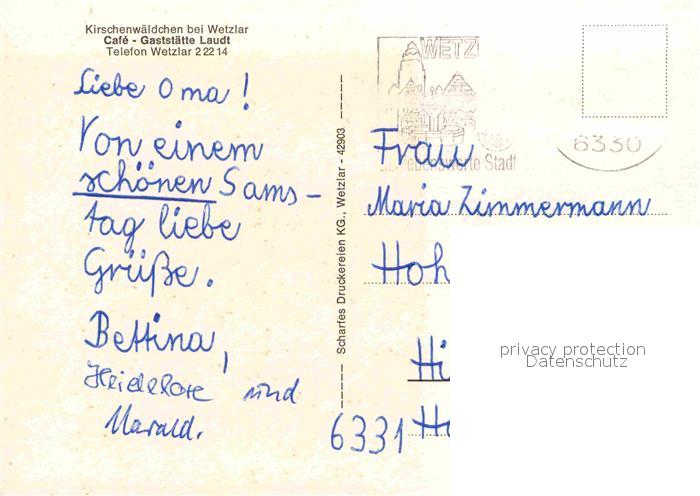 Kirschenwäldchen bei Wetzlar
Café - Gaststätte Laudt
Telefon Wetzlar 2 22 14
Liebe Oma!
Von einem
schönen Sams-
tag liebe
Grüße.
Bettina,
Heidelore und
Harald.
Scharfes Druckereien KG., Wetzlar - 42903
WETZ
lebenswerte Stadt
6330
Frau
Maria Zimmermann
Hoh
Hi
6331 Ho
privacy protection
Datenschutz